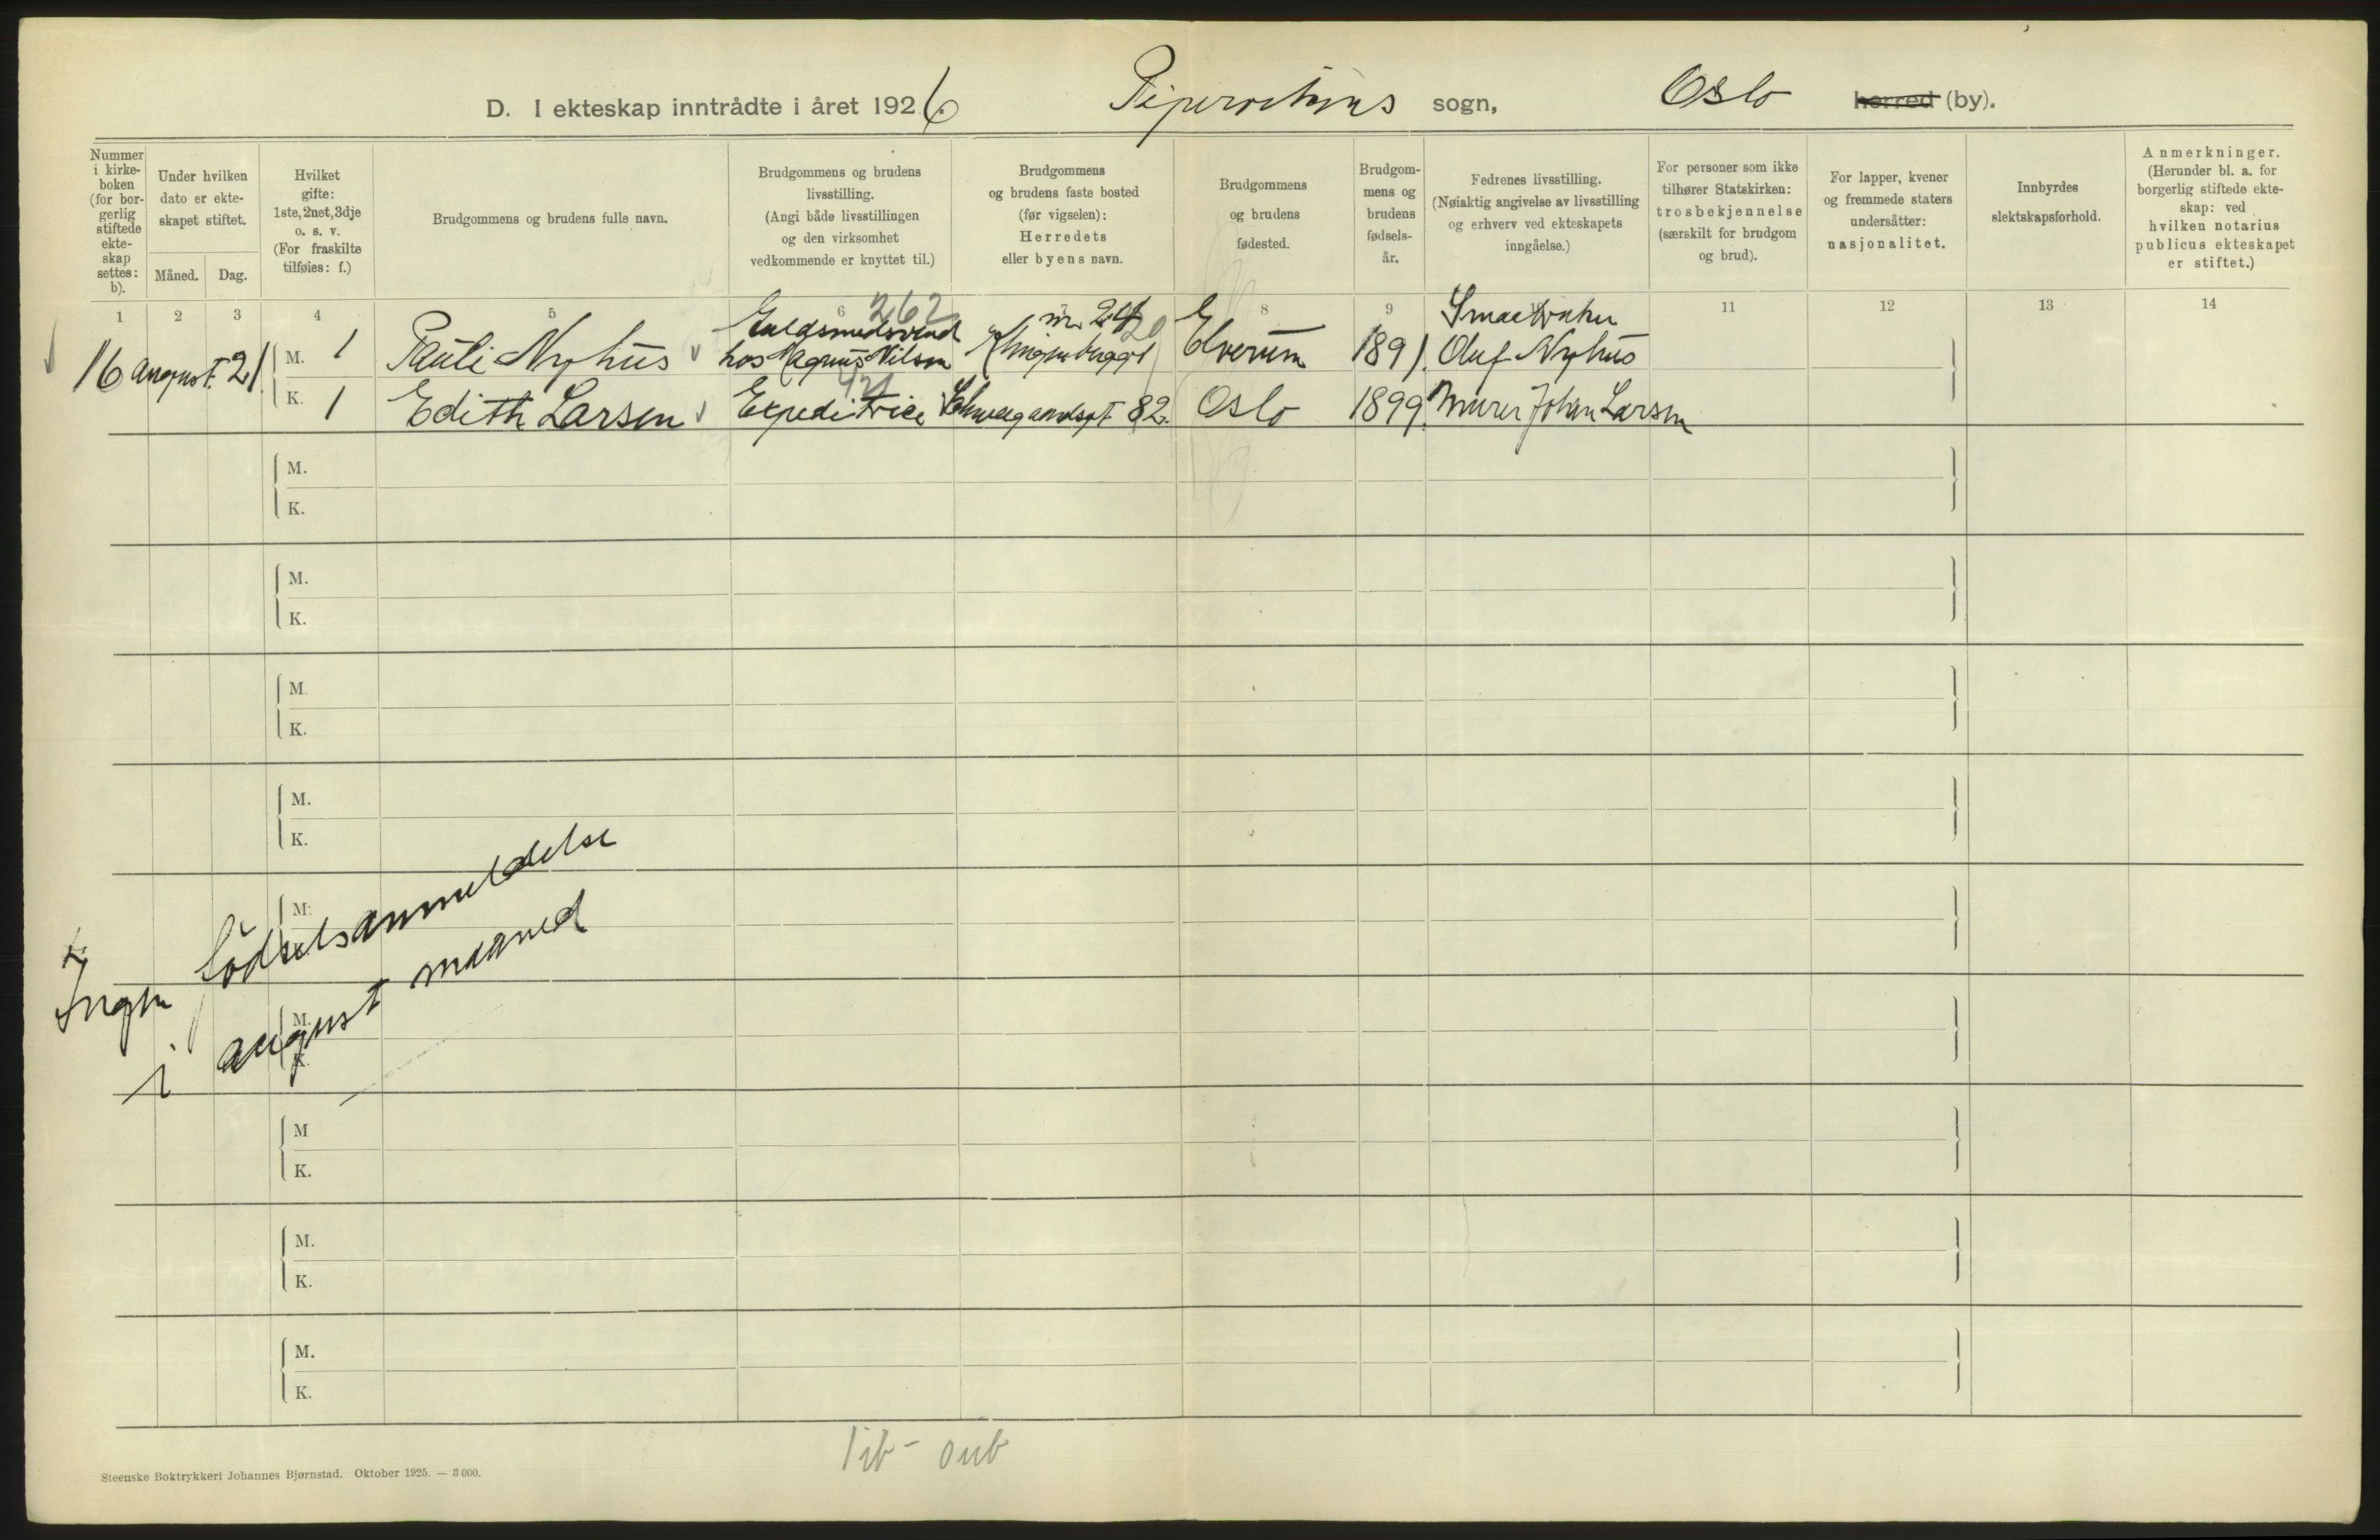 D. I ekteskap inntrådte i året 1926. Pipervikens sogn, Oslo herred (by).
Nummer i kirkeboken (for borgerlig stiftede ekteskap settes: b).
Under hvilken dato er ekteskapet stiftet.
Måned. Dag.
Hvilket gifte: 1ste, 2net, 3dje o. s. v. (For fraskilte tilføies: f.)
Brudgommens og brudens fulle navn.
Brudgommens og brudens livsstilling. (Angi både livsstillingen og den virksomhet vedkommende er knyttet til.)
Brudgommens og brudens faste bosted (før vigselen): Herredets eller byens navn.
Brudgommens og brudens fødested.
Brudgommens og brudens fødselsår.
Fedrenes livsstilling. (Nøiaktig angivelse av livsstilling og erhverv ved ekteskapets inngåelse.)
For personer som ikke tilhører Statskirken: trosbekjennelse (særskilt for brudgom og brud).
For lapper, kvener og fremmede staters undersåtter: nasjonalitet.
Innbyrdes slektskapsforhold.
Anmerkninger. (Herunder bl. a. for borgerlig stiftede ekteskap: ved hvilken notarius publicus ekteskapet er stiftet.)
1 2 3 4 5 6 8 9 11 12 13 14
262 nr. 24 20
Guldsmedsvend Smaabruker
16 august 21. M. 1 Pauli Nyhus hos Magnus Nilsen Klingenberggt Elverum 1891. Oluf Nyhus
K. 1 Edith Larsen Expeditrice Schweigaardsgt 82. Oslo 1899. Murer Johan Larsen
M.
K.
M.
K.
M.
K.
M.
K.
M.
Ingen födselsanmeldelse
i august maaned
M.
K.
M
K.
M.
K.
M.
K.
Steenske Boktrykkeri Johannes Bjørnstad. Oktober 1925. — 3 000.